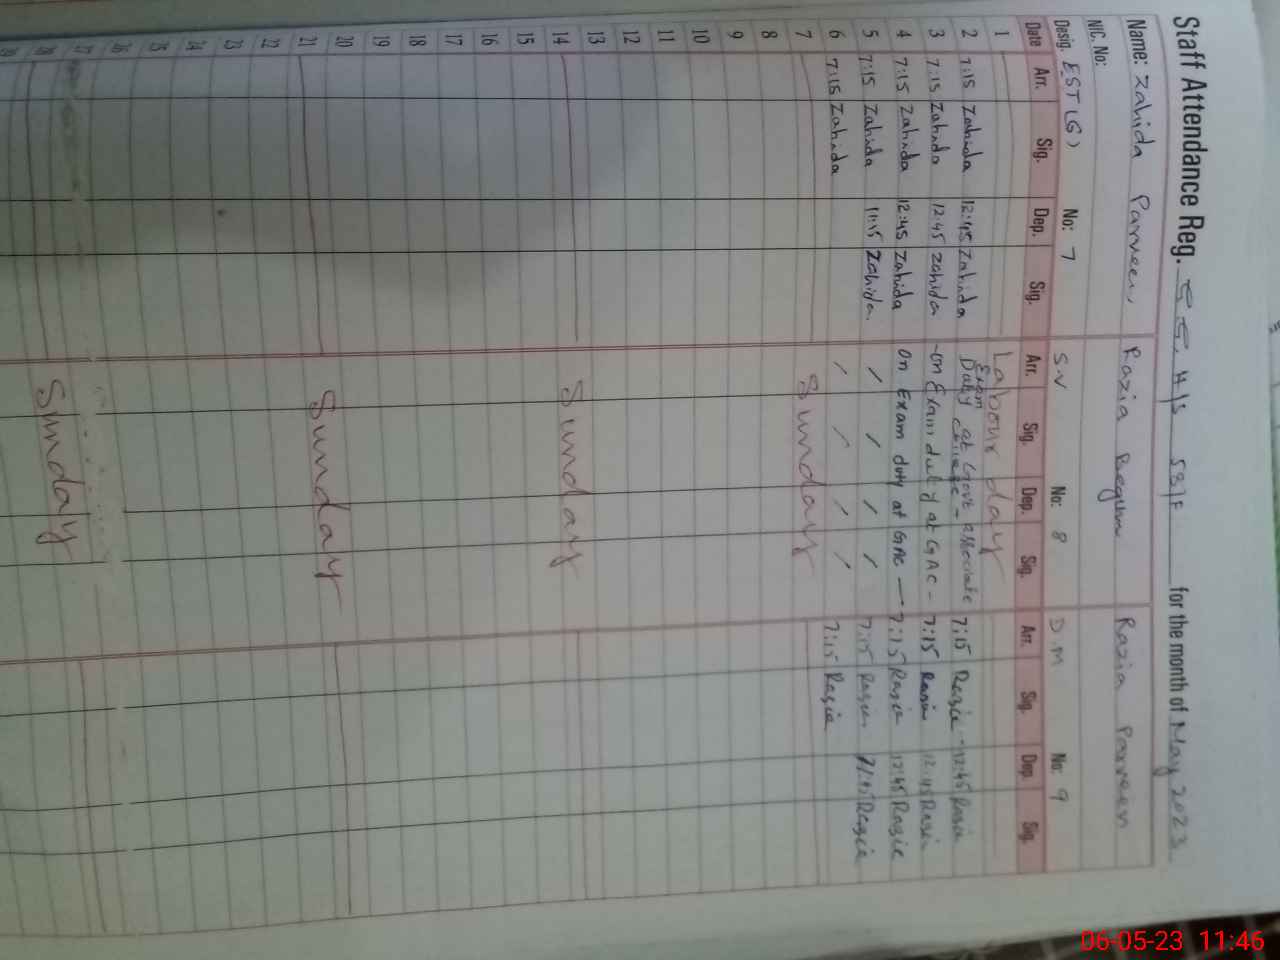 Staff Attendance Reg. G G. H/S 587/F for the month of May 2023
Name: Zahida Parveen Razia Begum Razia Parveen
NIC. No:
Desig. EST(G) No: 7 S.V No: 8 D.M No: 9
Date Arr. Sig. Dep. Sig. Arr. Sig. Dep. Sig. Arr. Sig. Dep. Sig.
1 Labour day
2 7:15 Zahida 12:45 Zahida Exam Duty at Govt associate college - 7:15 Razia 12:45 Razia
3 7:15 Zahida 12:45 Zahida - on Exam duty at GAC - 7:15 Razia 12:45 Razia
4 7:15 Zahida 12:45 Zahida On Exam duty at GAC — 7:15 Razia 12:45 Razia
5 7:15 Zahida 11:15 Zahida / / / / 7:15 Razia 11:15 Razia
6 7:15 Zahida / / / / 7:15 Razia
7 Sunday
8
9
10
11
12
13
14 Sunday
15
16
17
18
19
20
21 Sunday
22
23
24
25
26
27
28 Sunday
29
06-05-23 11:46